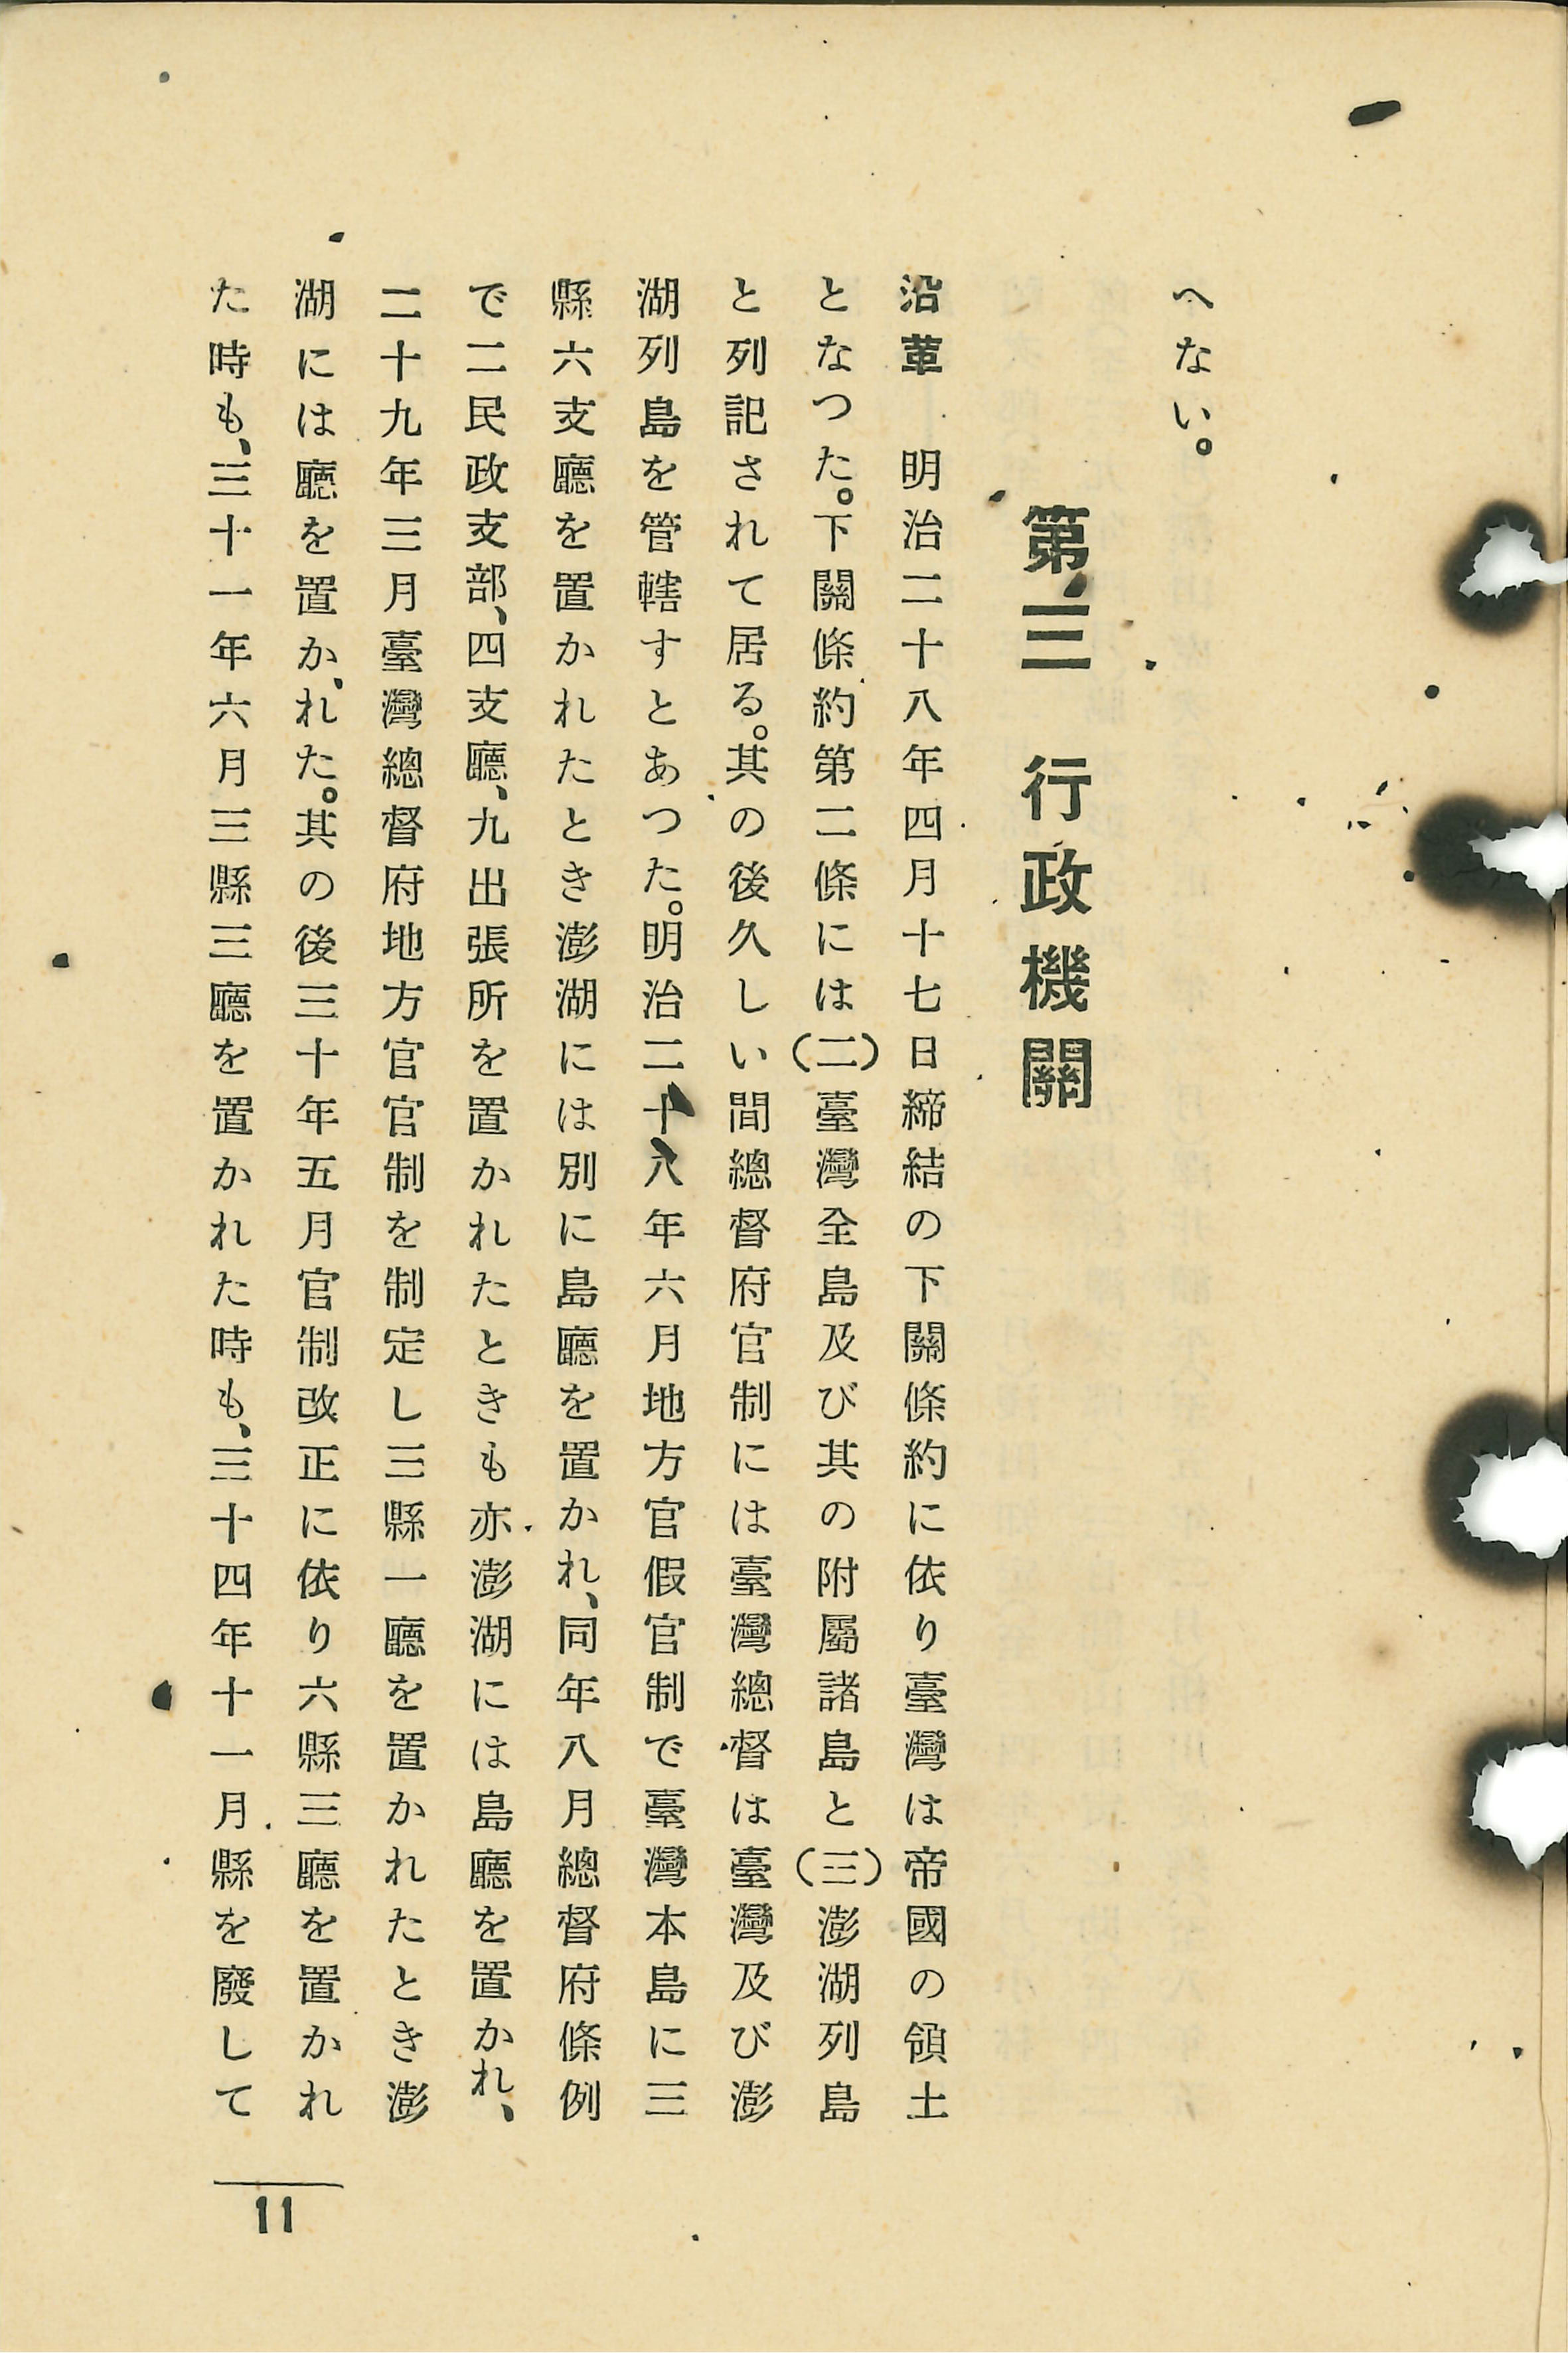 へない。
第三　行政機關
沿革　明治二十八年四月十七日締結の下關條約に依り臺灣は帝國の領土
となつた。下關條約第二條には(二)臺灣全島及び其の附屬諸島と(三)澎湖列島
と列記されて居る。其の後久しい間總督府官制には臺灣總督は臺灣及び澎
湖列島を管轄すとあつた。明治二十八年六月地方官假官制で臺灣本島に三
縣六支廳を置かれたとき澎湖には別に島廳を置かれ、同年八月總督府條例
で二民政支部、四支廳、九出張所を置かれたときも亦澎湖には島廳を置かれ、
二十九年三月臺灣總督府地方官官制を制定し三縣一廳を置かれたとき澎
湖には廳を置かれた。其の後三十年五月官制改正に依り六縣三廳を置かれ
た時も、三十一年六月三縣三廳を置かれた時も、三十四年十一月縣を廢して
11